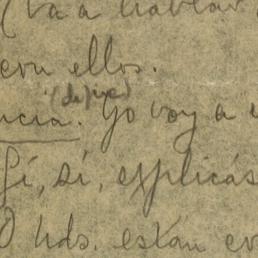 (va a hablar
con ellos.
(dejue)
ncia. Yo voy a
Sí, sí, explicás
O Uds. están